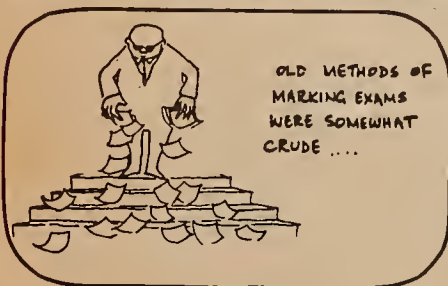 OLD METHODS OF
MARKING EXAMS
WERE SOMEWHAT
CRUDE ....